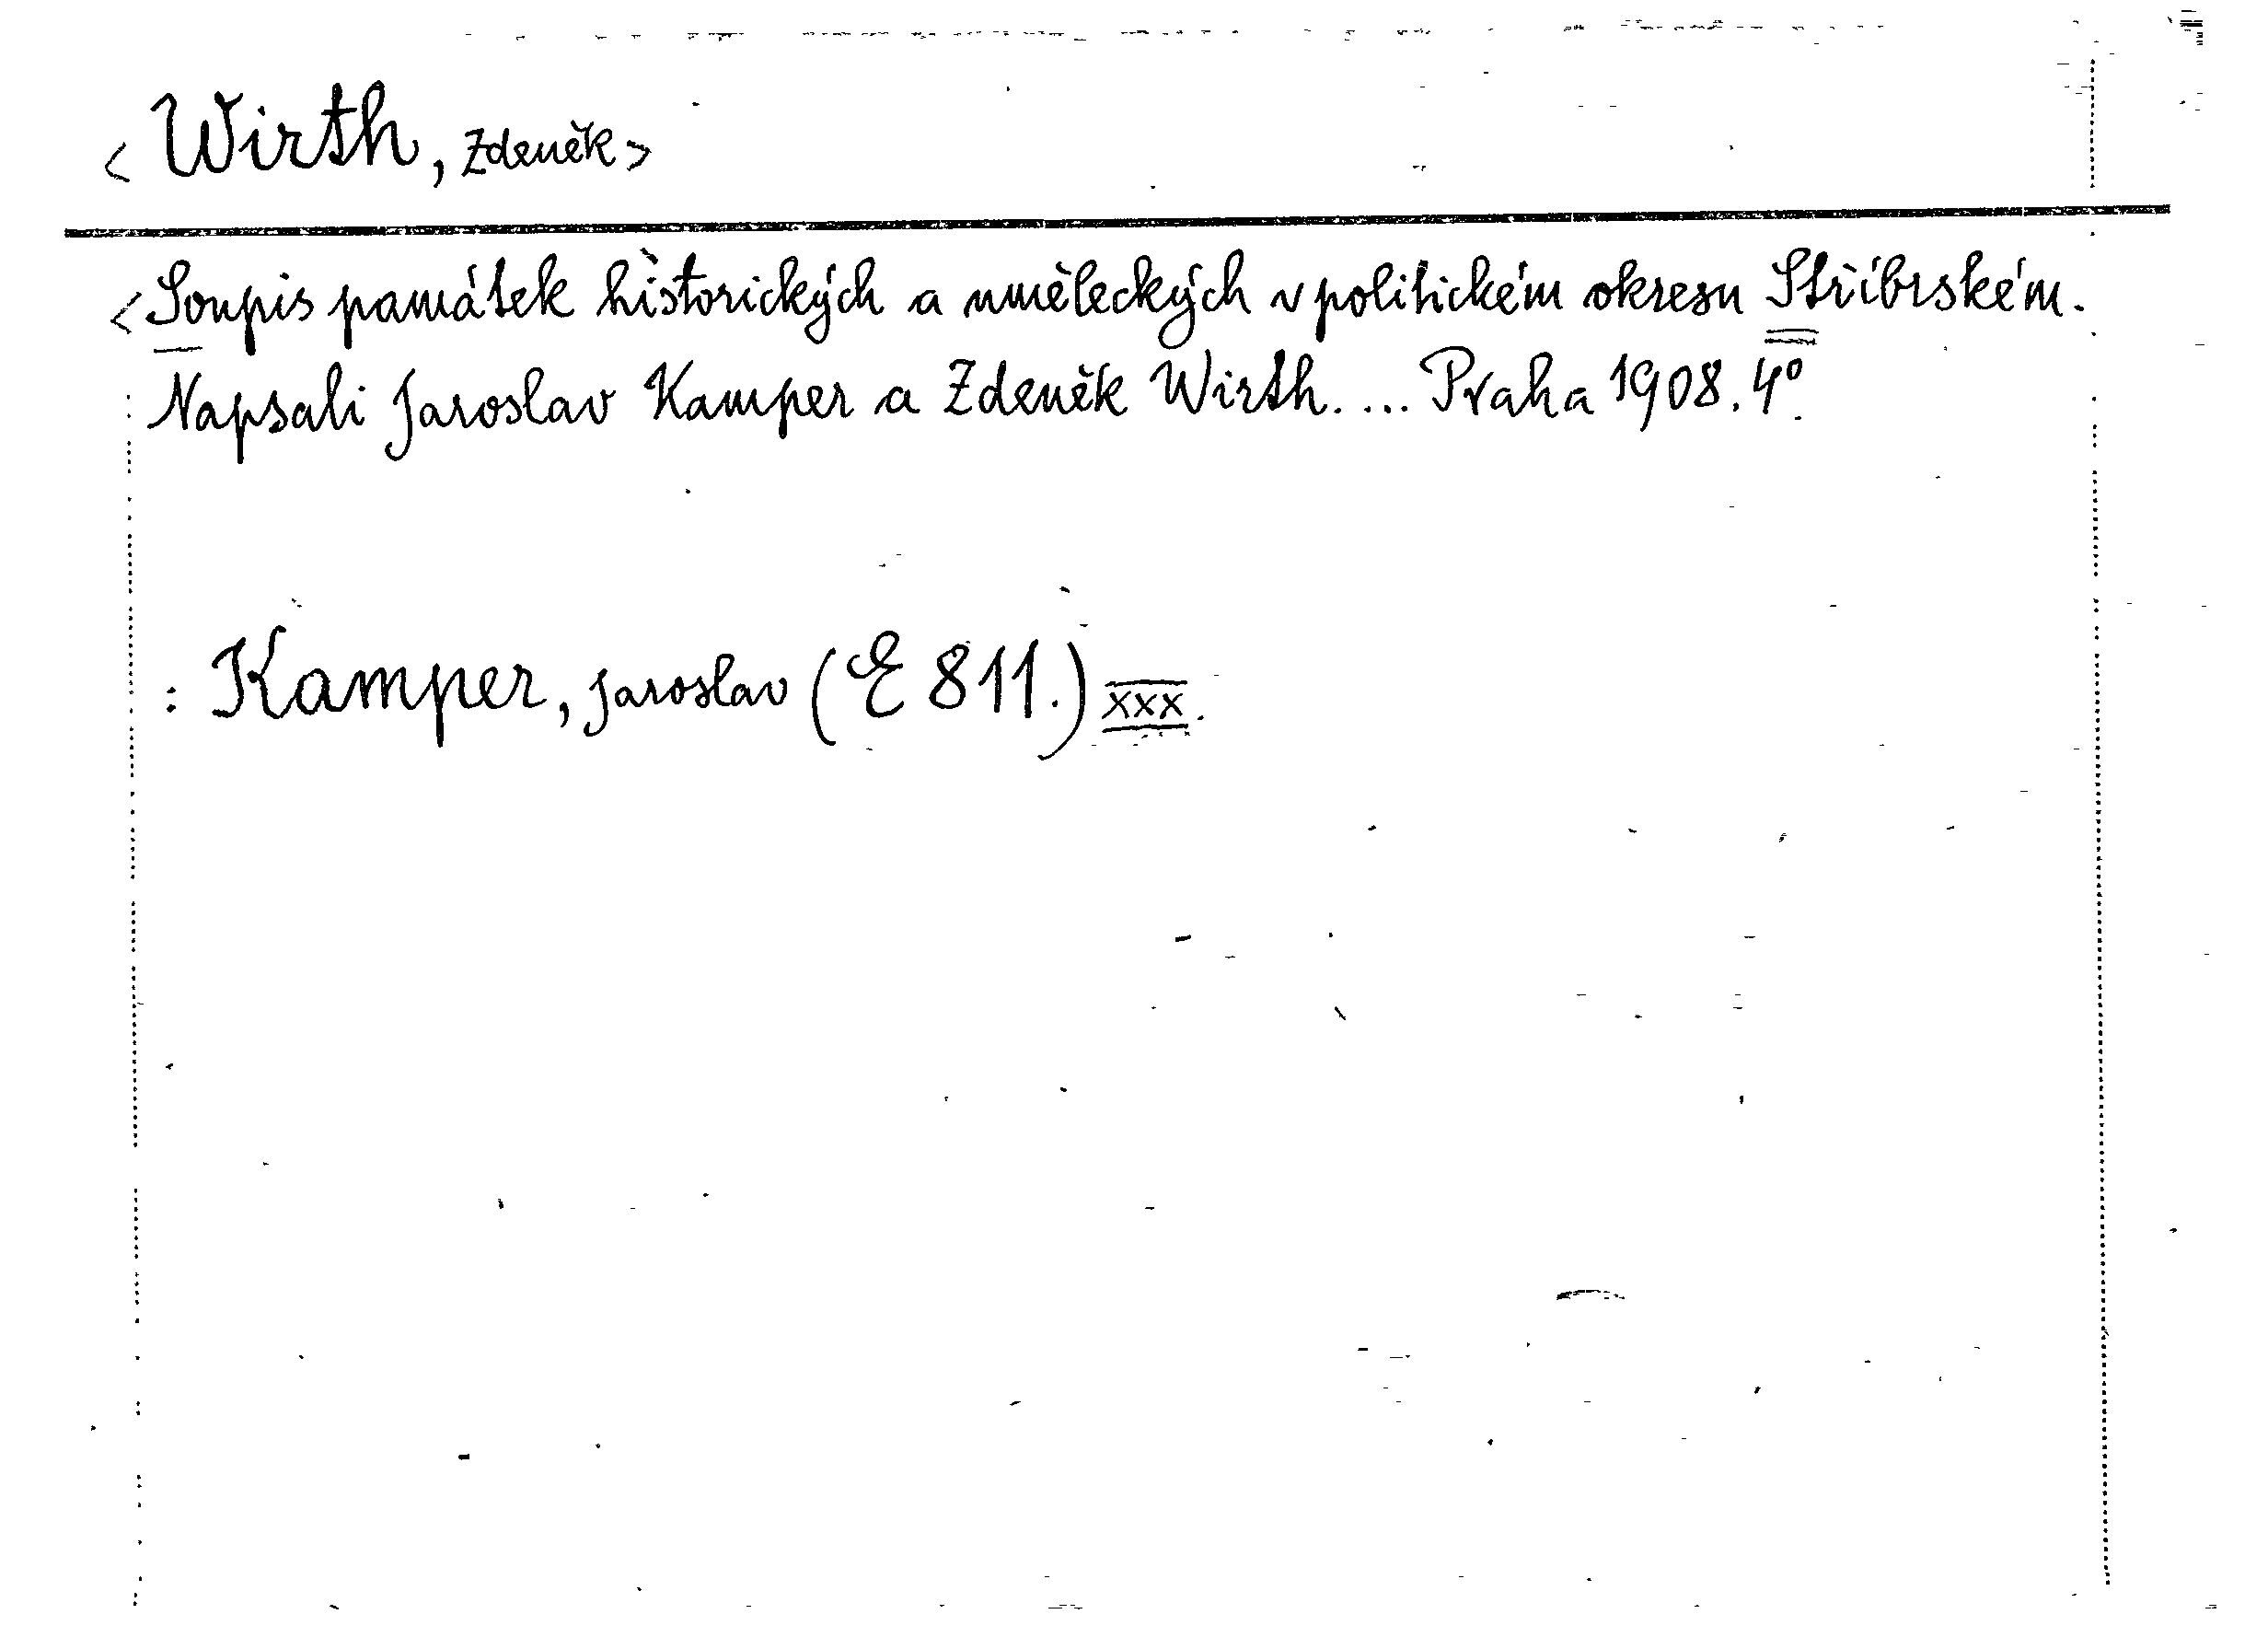 < Wirth, Zdeněk >
< Soupis památek historických a uměleckých v politickém okresu Stříbrském.
Napsali Jaroslav Kamper a Zdeněk Wirth. ... Praha 1908. 4°.
: Kamper, Jaroslav (E 811.) XXX.